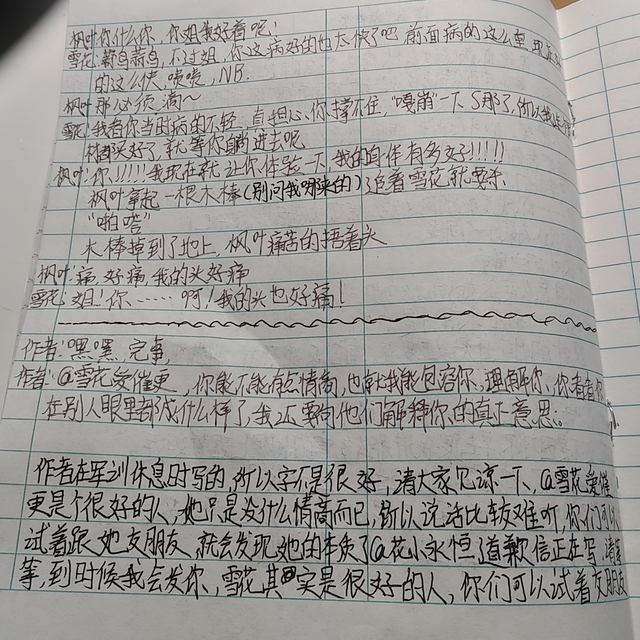 枫叶:你什么你,你姐我好着呢!
雪花:莉鸟莉鸟,不过姐,你这病好的也太快了吧 前面病的这么重 现
的这么快,啧啧,NB.
枫叶:那必须滴~
雪花:我看你当时病的不轻,真担心你撑不住,“嘎嘣”一下S那了,所以我
都买好了,就等你躺进去呢
枫叶:你!!!!!我现在就让你体验一下,我的身体有多好!!!!!
枫叶拿起一根木棒(别问我哪来的)追着雪花就要杀
“啪嗒”
木棒掉到了地上,枫叶痛苦的捂着头
枫叶:痛,好痛,我的头好痛
雪花:姐!你……啊!我的头也好痛!
作者:嘿嘿,完事,
作者:@雪花爱催更,你能不能有点情商,也就我能包容你,理解你,你看看你
在别人眼里都成什么样了,我还要向他们解释你的真正意思。
作者在军训休息时写的,所以字不是很好,请大家见谅一下,@雪花爱催
更是个很好的人,她只是没什么情商而已,所以说话比较难听,你们可以
试着跟她交朋友,就会发现她的本质了@花小永恒 道歉信正在写,请
等,到时候我会发你,雪花其实是很好的人,你们可以试着交朋友